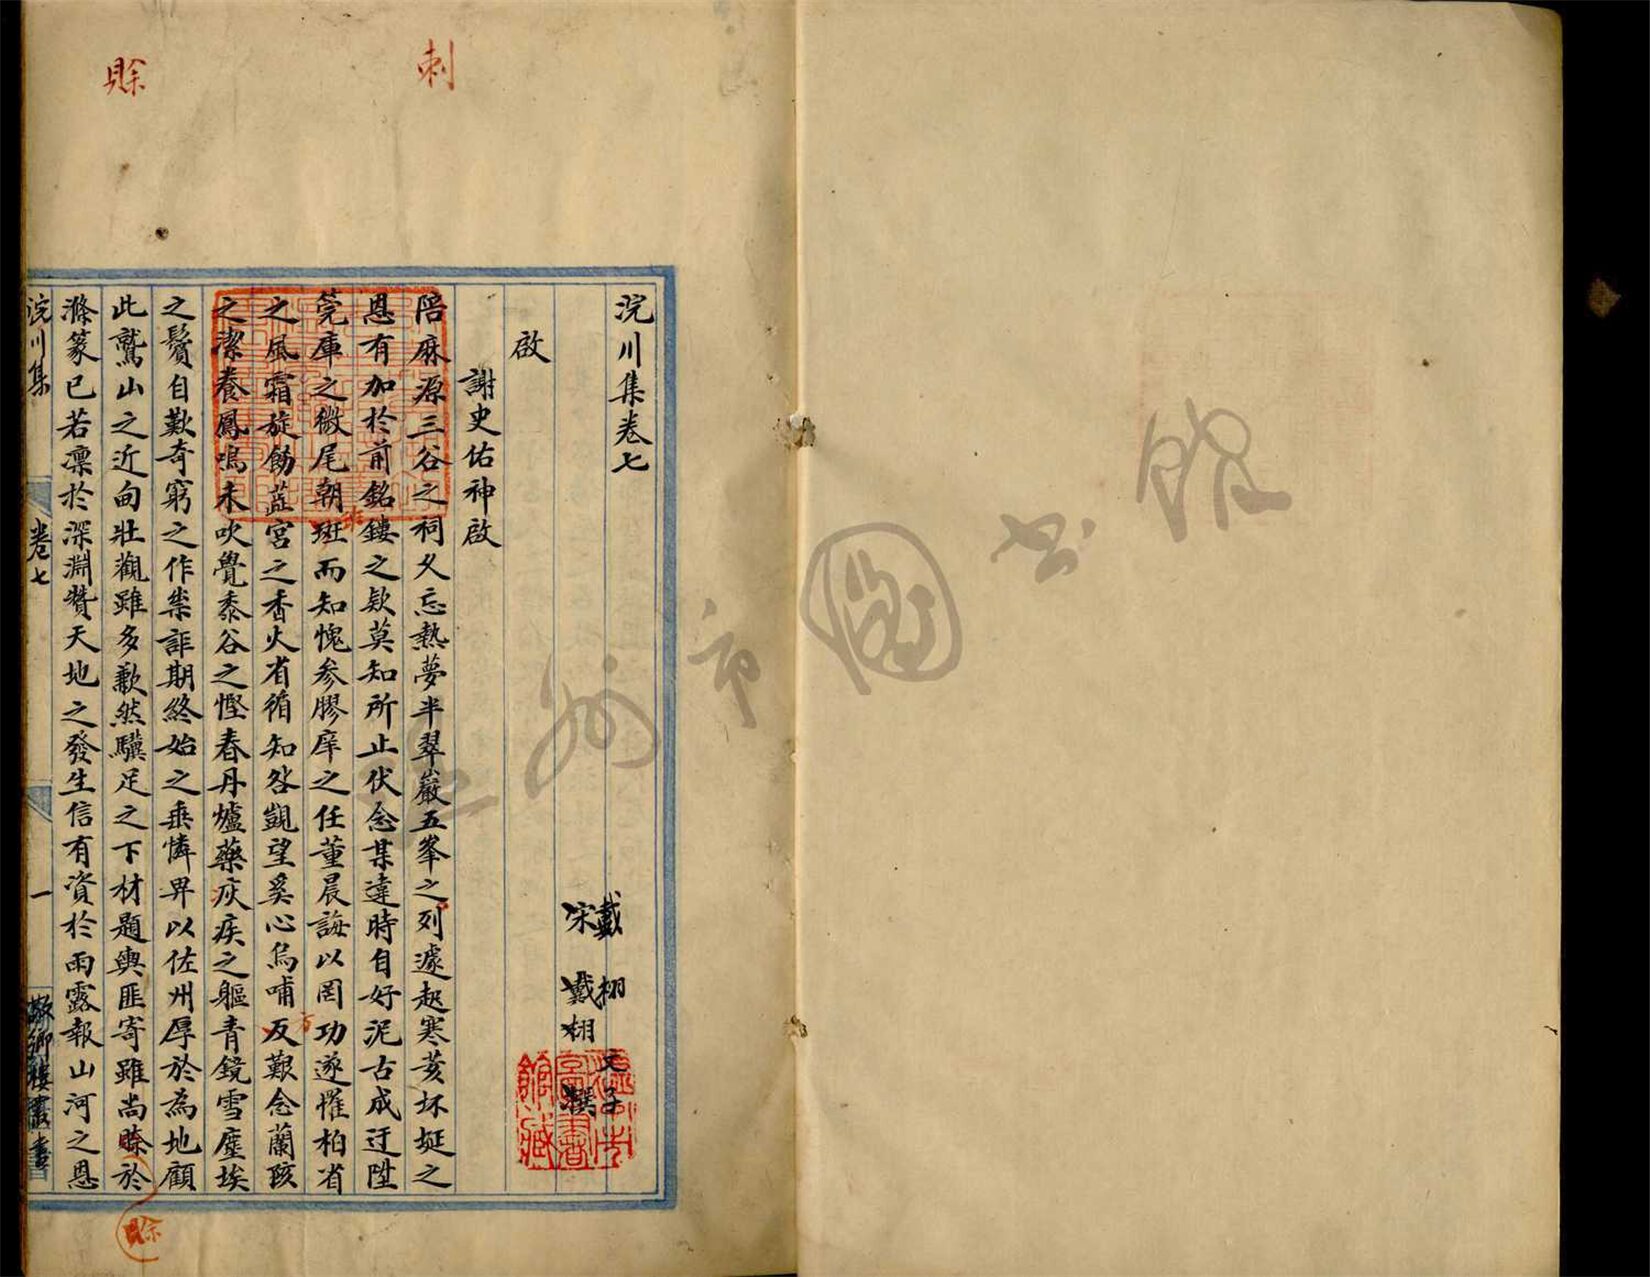 浣川集卷七
宋 戴栩 撰
戴栩 文子
啟
謝史佑神啟
陪麻源三谷之祠久忘熱夢半翠巖五峯之列遽起寒荄坏埏之
恩有加於前銘鏤之欵莫知所止伏念某違時自好泥古成迂陞
筦庫之微尾朝班而知愧參膠庠之任董晨誨以罔功遂懼柏省
之風霜旋飭蕋宮之香火有循知咎覬望奚心烏哺反艱念蘭陔
之潔養鳳鳴未吹覺黍谷之慳春丹爐藥灰疾之軀青鏡雪塵埃
之鬢自歎奇窮之作祟詎期終始之垂憐畀以佐州厚於為地顧
此鷲山之近甸壯觀雖多歉然驥足之下材題輿匪寄雖尚賒於
滌篆已若凛於深淵贊天地之發生信有資於雨露報山河之恩
浣川集
卷七
一
敬鄉樓叢書
刺
賖
賖
市圖書館